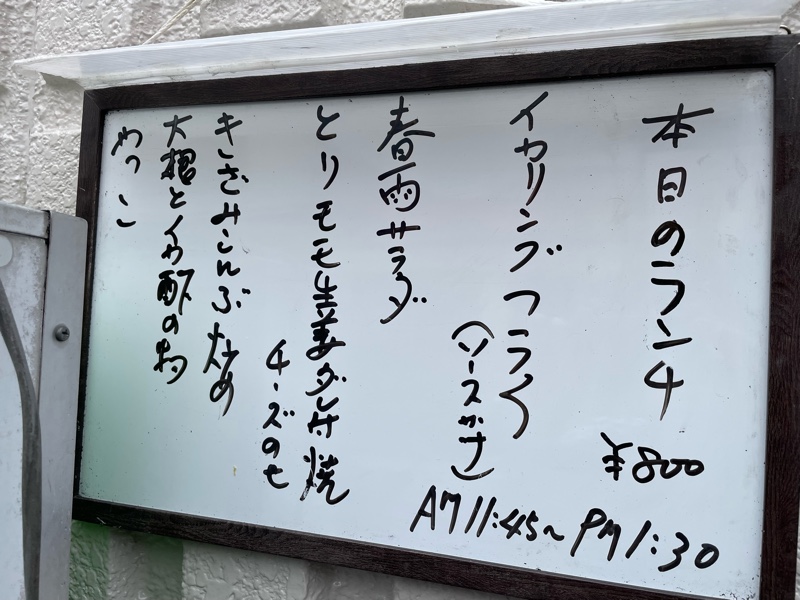 本日のランチ
¥800
イカリングフライ
(ソースがけ)
AM11:45~PM1:30
春雨サラダ
とりモモ生姜ダレ付焼
チーズのせ
きざみこんぶ炒め
大根とイカ酢の物
やっこ